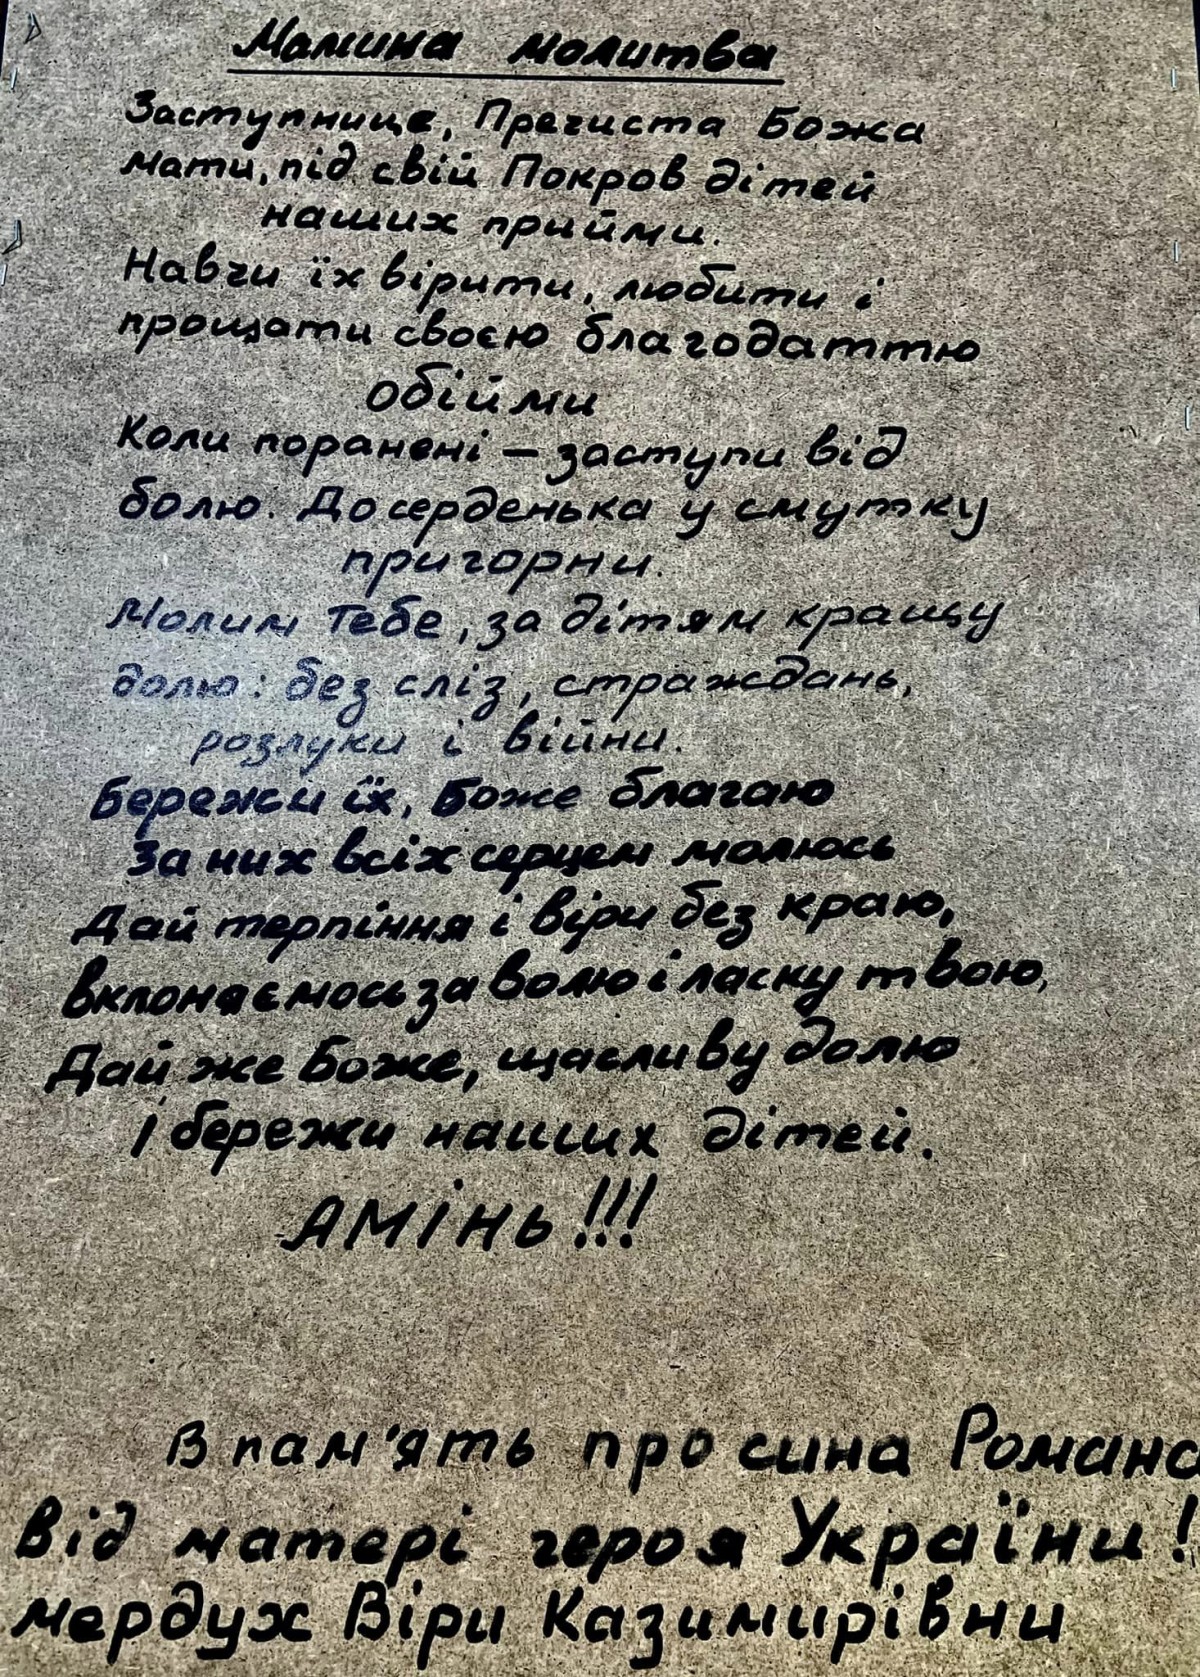 Мамина молитва
Заступнице, Пречиста Божа
Мати, під свій Покров дітей
наших прийми.
Навчи їх вірити, любити і
прощати своєю благодаттю
обійми
Коли поранені – заступи від
болю. До серденька у смутку
пригорни.
Молим Тебе, за дітям кращу
долю: без сліз, страждань,
розлуки і війни.
Бережи їх, Боже благаю
За них всіх серцем молюсь
Дай терпіння і віри без краю,
вклоняємось за волю і ласку твою,
Дай же Боже, щасливу долю
І бережи наших дітей.
АМІНЬ!!!
В пам'ять про сина Романа
від матері героя України!
мердух Віри Казимирівни